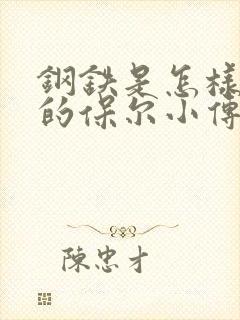 鋼鉄是怎樣
的保尔小傳
陳忠才